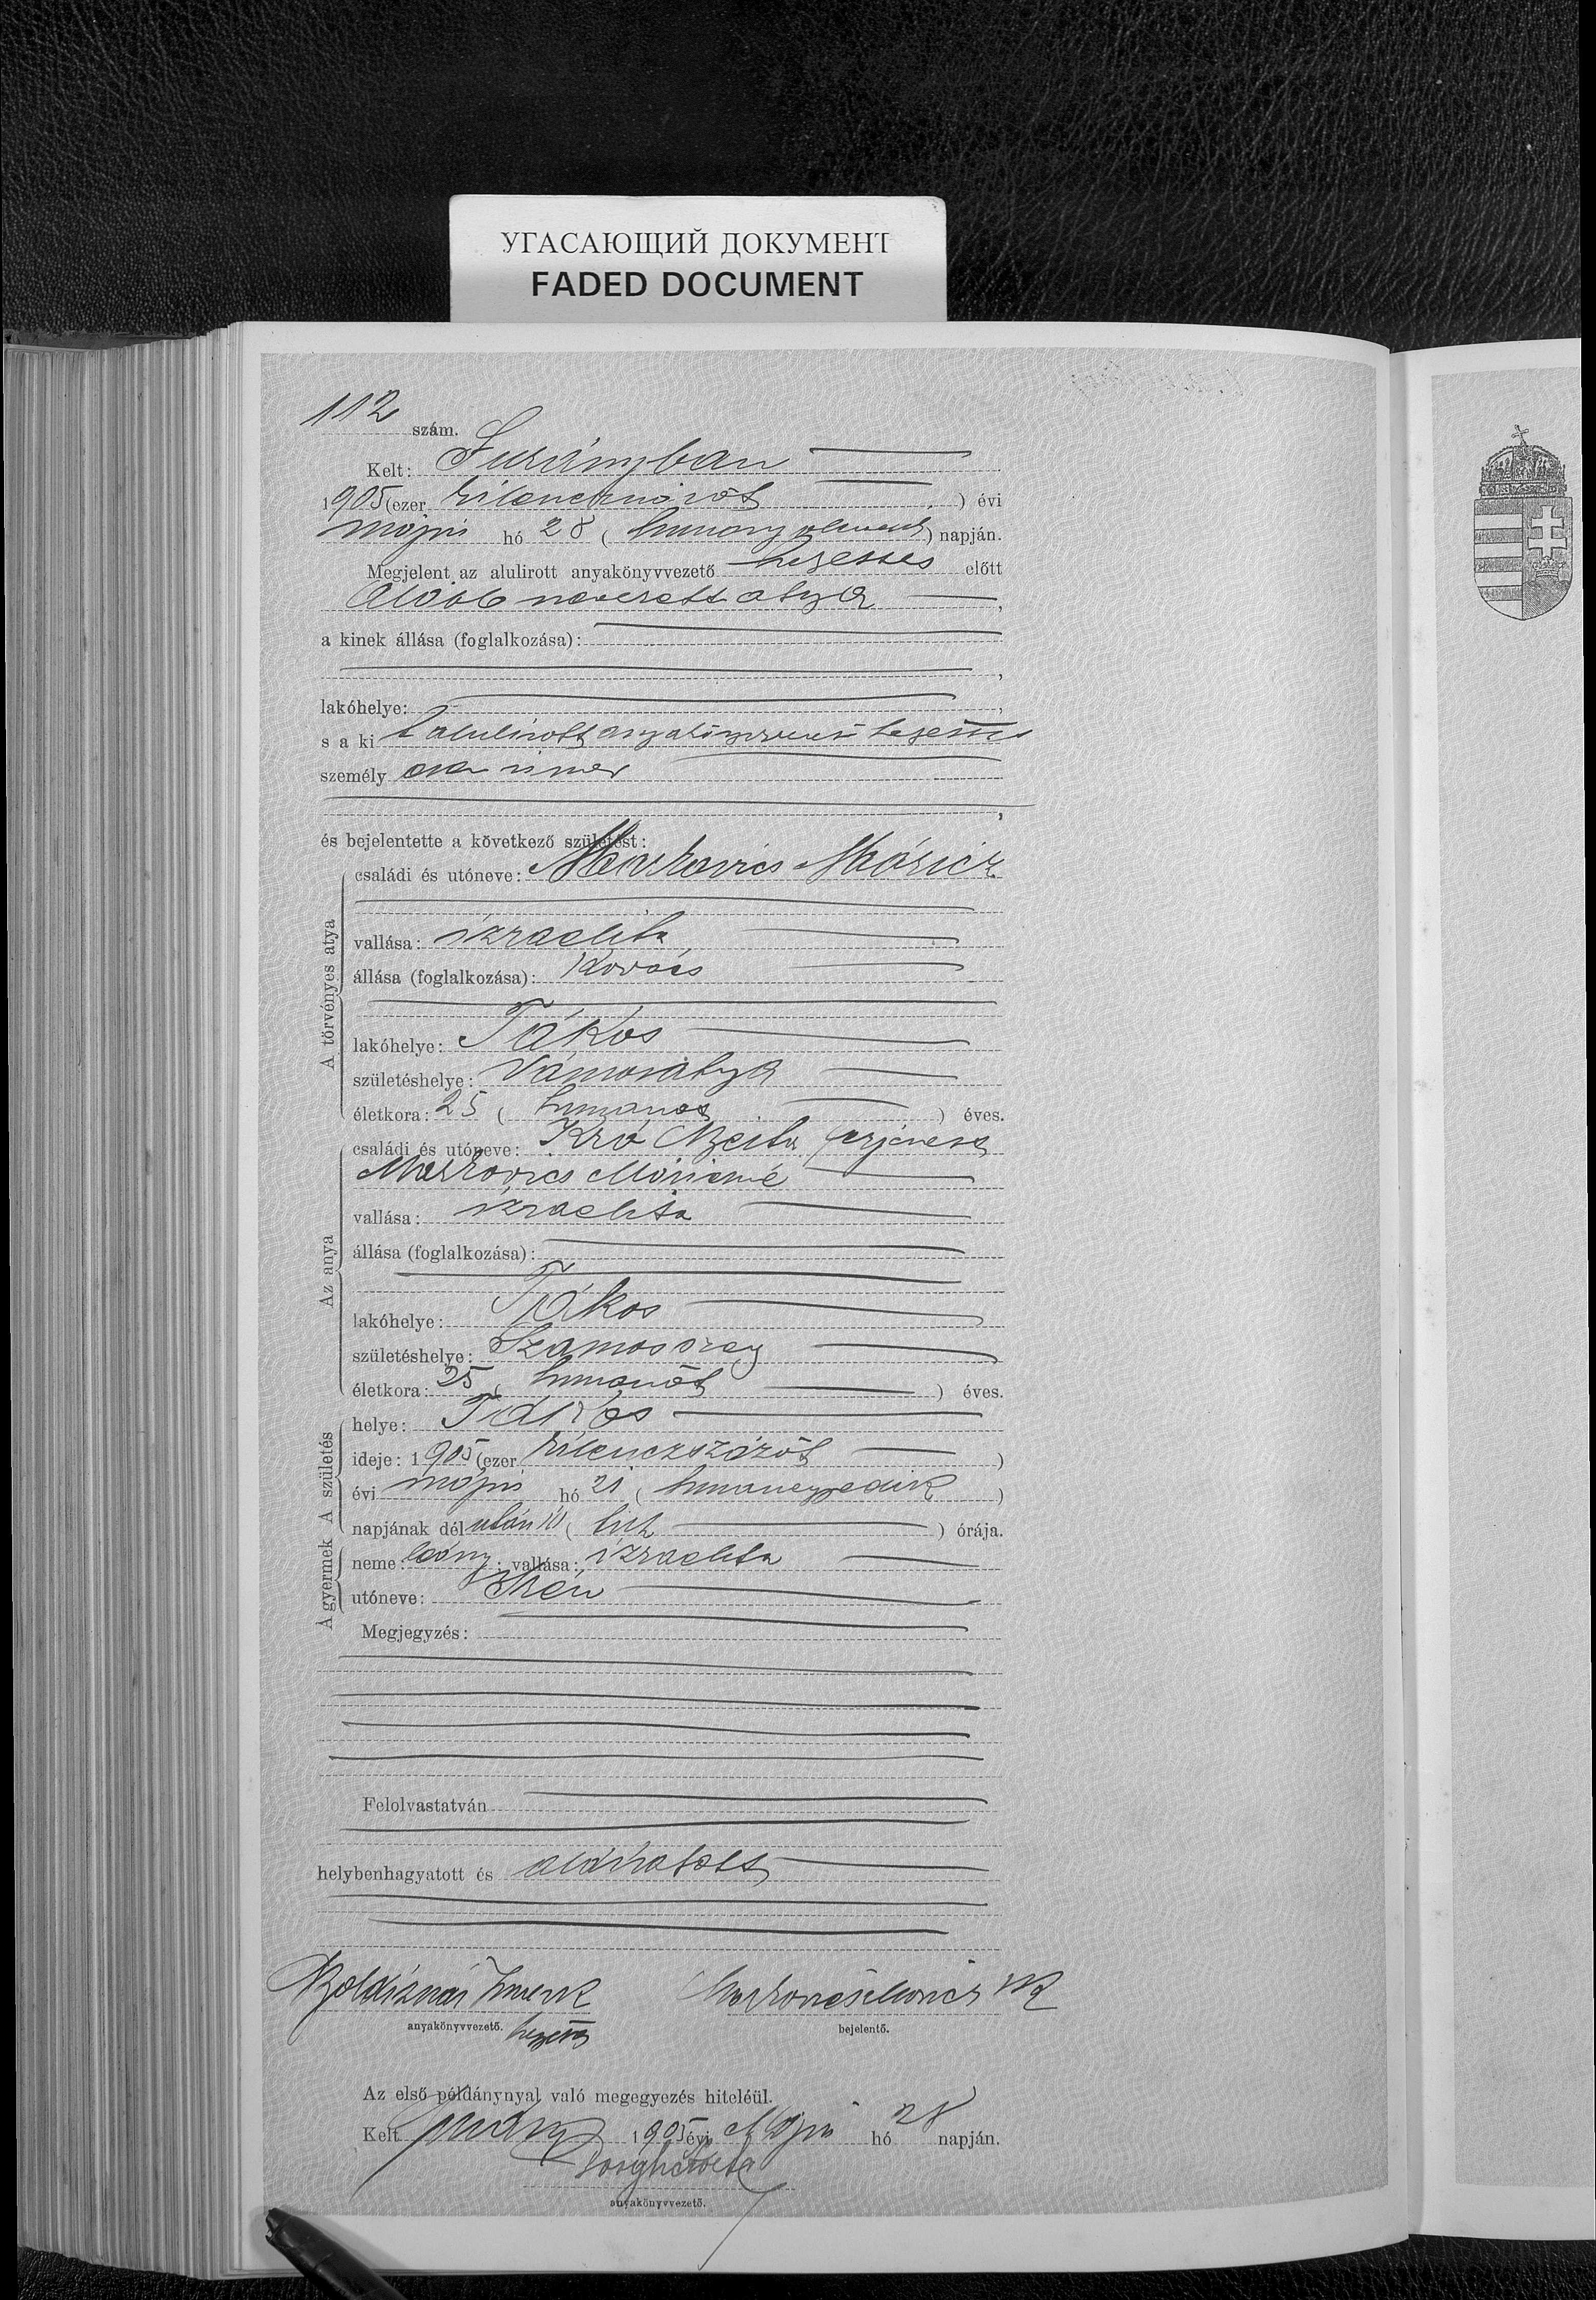 УГАСАЮЩИЙ ДОКУМЕНТ
FADED DOCUMENT
112 szám.
Kelt:
1905 (ezer kilenczszázöt) évi
május hó 28 (huszonnyolczadik) napján.
Megjelent az alulirott anyakönyvvezető helyettes előtt
alább nevezett atya,
a kinek állása (foglalkozása):
lakóhelye:
s a ki t alulirott anyakönyvvezető helyettes
személy esen ismer
és bejelentette a következő születést:
A törvényes atya
családi és utóneve: Markovics Móricz
vallása: izraelita
állása (foglalkozása): Kovács
lakóhelye: Tákos
születéshelye: Vámosatya
életkora: 25 ( ) éves.
Az anya
családi és utóneve: Berta férjezett
Markovics Móriczné
vallása: izraelita
állása (foglalkozása):
lakóhelye: Tákos
születéshelye:
életkora: 25 (huszonöt) éves.
A születés
helye: Tákos
ideje: 1905 (ezer kilenczszázöt)
évi május hó 21 (huszonegyedik)
napjának dél után 10 (tiz) órája.
A gyermek
neme: leány; vallása: izraelita
utóneve: Irén
Megjegyzés:
Felolvastatván
helybenhagyatott és aláiratott
Boldizsár
anyakönyvvezető. helyettes
Markovics Móricz
bejelentő.
Az első példánynyal való megegyezés hiteléül.
Kelt 1905 évi Május hó 28 napján.
anyakönyvvezető.